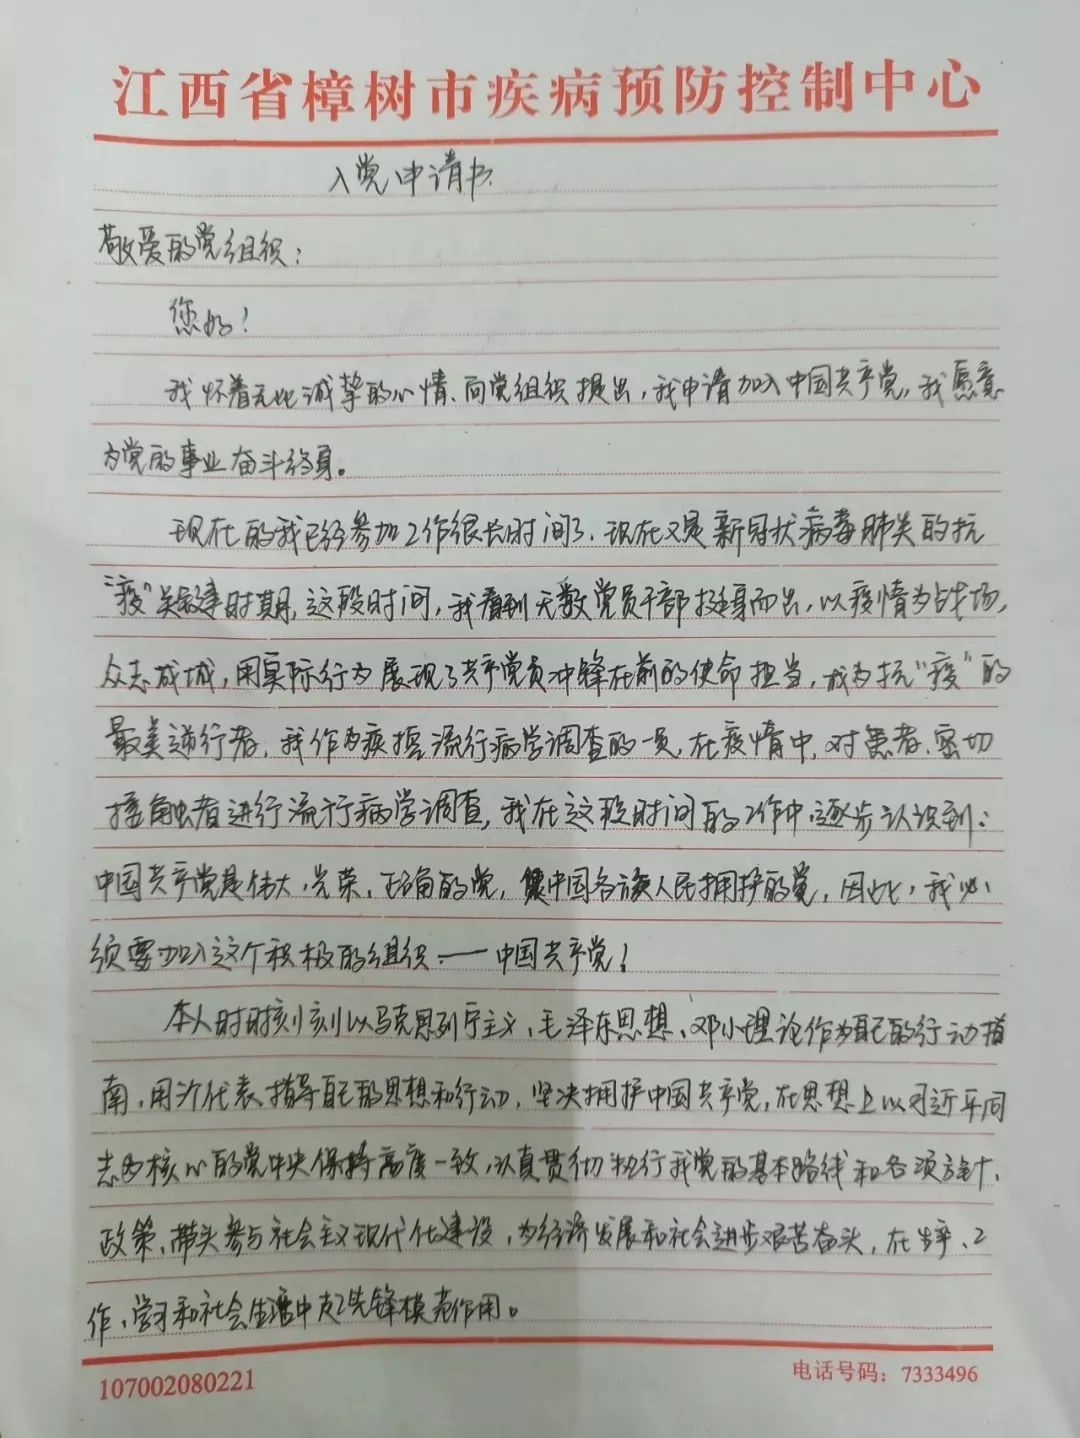 江西省樟树市疾病预防控制中心
入党申请书
敬爱的党组织：
您好！
我怀着无比诚挚的心情、向党组织提出，我申请加入中国共产党，我愿意
为党的事业奋斗终身。
现在的我已经参加工作很长时间了，现在又是新冠状病毒肺炎的抗
“疫”关键时期，这段时间，我看到无数党员干部挺身而出，以疫情为战场，
众志成城，用实际行为展现了共产党员冲锋在前的使命担当，成为抗“疫”的
最美逆行者，我作为疾控流行病学调查的一员，在疫情中，对患者、密切
接触者进行流行病学调查，我在这段时间的工作中逐步认识到：
中国共产党是伟大，光荣，正确的党，是中国各族人民拥护的党，因此，我必
须要加入这个积极的组织——中国共产党！
本人时时刻刻以马克思列宁主义，毛泽东思想、邓小理论作为自己的行动指
南，用代表指导自己的思想和行动，坚决拥护中国共产党，在思想上以习近平同
志为核心的党中央保持高度一致，认真贯彻执行我党的基本路线和各项方针、
政策，带头参与社会主义现代化建设，为经济发展和社会进步艰苦奋头，在生产、工
作，学习和社会生活中起先锋模范作用。
107002080221
电话号码：7333496